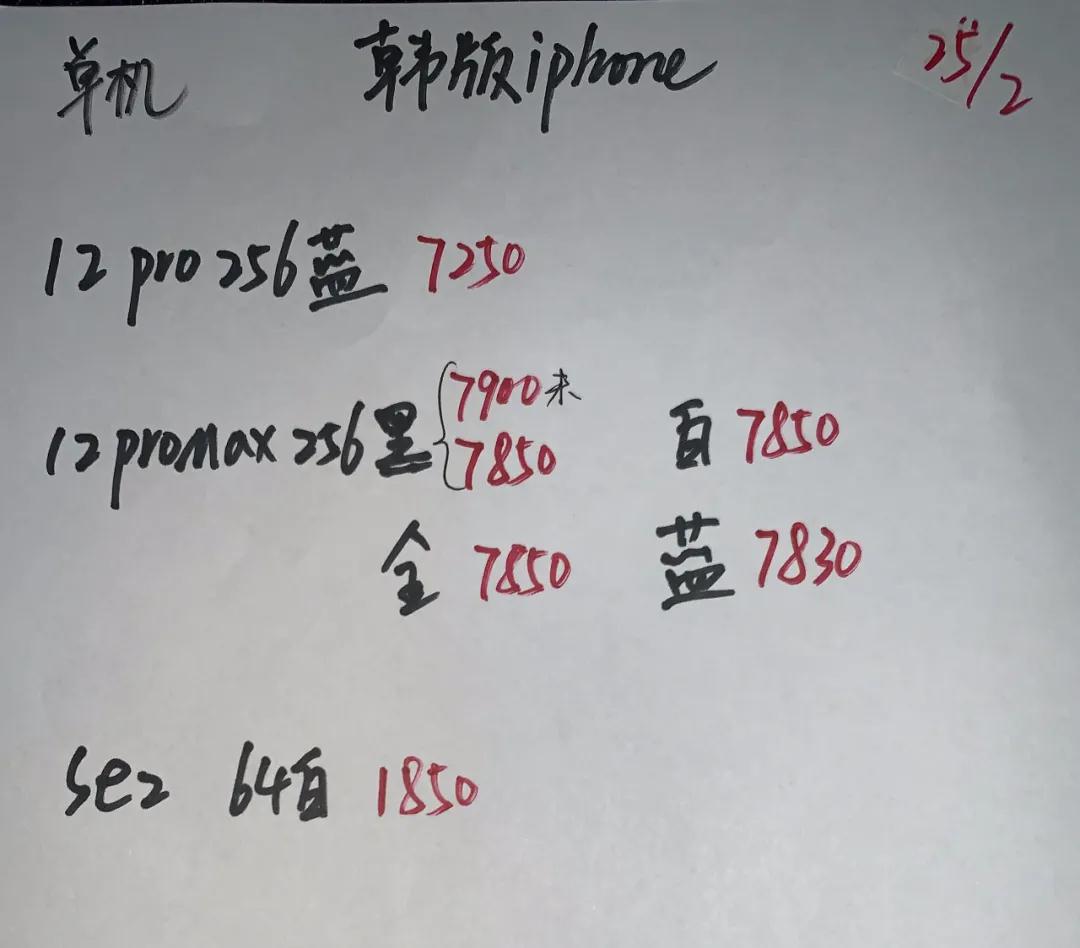 单机 韩版iphone 25/2
12 pro 256蓝 7250
12promax 256黑 7900未 白 7850
7850
金 7850 蓝 7830
se2 64白 1850